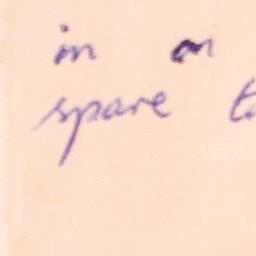 in on
spare